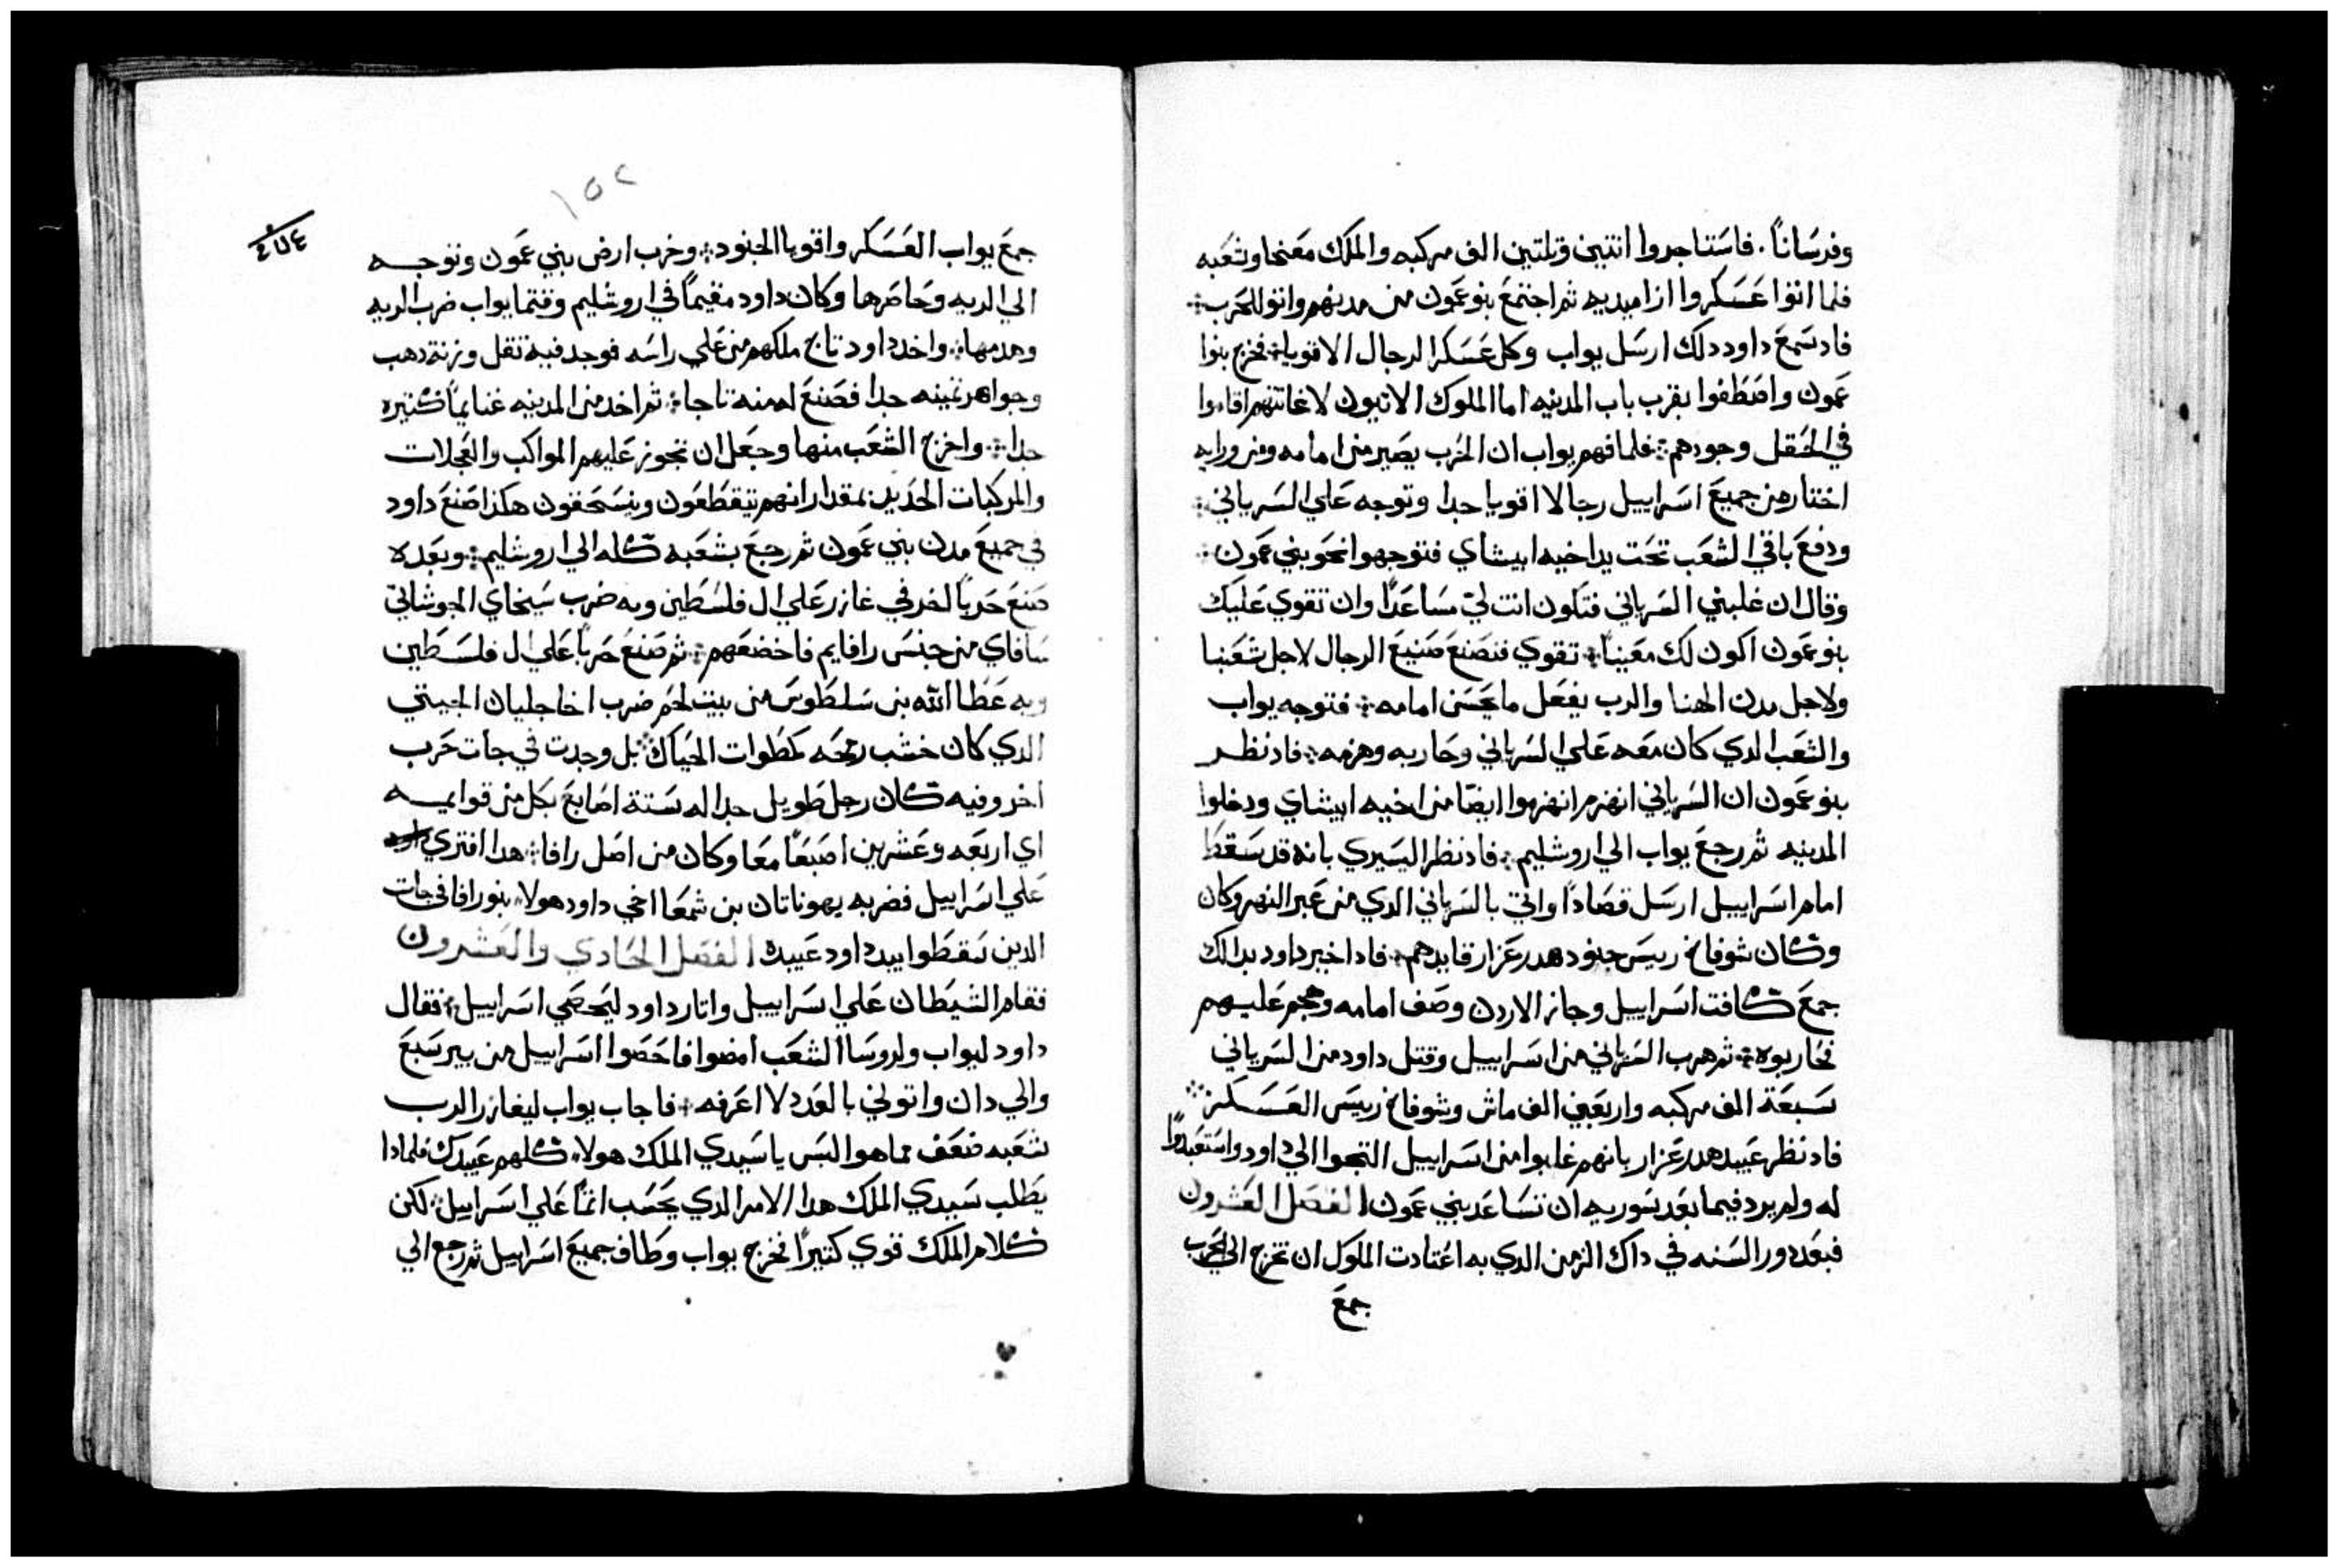 وفرسَاناً. فاسَتاجروا اتنين وتلتين الف مركبه والملك مَعَنحا وشعَبه
فلما اتوا عَسَكروا ازا ميديه ثم اجتمَعَ بنو عَمون من مدنهم واتوا للحَرب
فاد سَمعَ داود دلك ارسَل يواب وكل عَسَكر الرجال الاقويا فخرج بنوا
عَمون واصَطَفوا بقرب باب المدينه اما الملوك الاتيون لاغاتتهم اقاموا
في الحَقل وحودهم فلما فهم يواب ان الحَرب يصَير من امامه ومن ورايه
اختار من جميعَ اسَراييل رجالا اقويا جدا وتوجه عَلي السَرياني
ودفعَ باقي الشعَب تحَت يد اخيه ابيشاي فتوجهوا نحَو بني عَمون
وقال ان غلبني السَرياني فتكون انت لي مسَاعَداً وان تقوي عَليك
بنو عَمون اكون لك معَيناً تقوي فنصَنعَ صَنيعَ الرجال لاجل شعَبنا
ولاجل مدن الهنا والرب يفعَل ما يحَسَن امامه فتوجه يواب
والشعَب الدي كان معَه عَلي السَرياني وحَاربه وهزمه فاد نظر
بنو عَمون ان السَرياني انهزم انهزموا ايضَا من اخيه ابيشاي ودخلوا
المدينه ثم رجعَ يواب الي اروشليم فاد نظر اليسَيري بانه قد سَقطَ
امام اسَراييل ارسَل قصَاداً واتي بالسَرياني الدي من عَبر النهر وكان
وكان شوفاخ رييسَ جنود هدرعَزار قايدهم فاد اخبر داود بدالك
جمعَ كافت اسَراييل وجاز الاردن وصَف امامه وهجم عَليهم
فحَاربوه ثم هرب السَرياني من اسَراييل وقتل داود من السَرياني
سَبعَة الف مركبه واربعَين الف ماش وشوفاخ رييسَ العَسَكر
فاد نظر عَبيد هدرعَزار بانهم غلبوا من اسَراييل التجوا الي داود واستعَبدوا
له ولم يرد فيما بعَد سَوريه ان تسَاعَد بني عَمون الفصَل العَشرون
فبعَد دور السَنه في داك الزمن الدي به اعَتادت الملوك ان تخرج الي الحَرب
جمعَ
١٥٢
٤٧٤
جمعَ يواب العَسَكر واقويا الجنود وخرب ارض بني عَمون وتوجه
الي الربه وحَاصَرها وكان داود مقيماً في اروشليم وقتما يواب ضرب الربه
وهدمها واخد داود تاج ملكهم من عَلي راسَه فوجد فيه تقل وزنة دهب
وجواهر تمينه جدا فصَنعَ له منه تاجا ثم اخد من المدينه غنايماً كتيره
جدا واخرج الشعَب منها وجعَل ان تجوز عَليهم المواكب والعَجلات
والمركبات الحَديد بمقدار انهم يتقطَعَون وينسَحَقون هكذا صَنعَ داود
في جميعَ مدن بني عَمون ثم رجعَ بشعَبه كله الي اروشليم وبعَده
صَنعَ حَرباً اخر في غازر عَلي ال فلسَطَين وبه ضرب سَبخاي الحوشاتي
سَافاي من جنسَ رافايم فاخضعَهم ثم صَنعَ حَرباً عَلي ال فلسَطَين
وبه عَطَا الله بن سَلطَوسَ من بيت لحَم ضرب اخا جليات الجيتي
الدي كان خشب رمحَه كمطَوات الحَياك بل وجدت في جات حَرب
اخر وفيه كان رجل طَويل جدا له سَتة اصَابعَ بكل من قوايمه
اي اربعَه وعَشرين اصَبعَاً معَا وكان من اصَل رافا هدا افتري
عَلي اسَراييل فضربه يهوناتان بن شمعَا اخي داود هولاء بنو رافا في جات
الدين سَقطَوا بيد داود عَبيده الفصَل الحَادي والعَشرون
فقام الشيطَان عَلي اسَراييل واتار داود ليحَصَي اسَراييل فقال
داود ليواب ولروسَا الشعَب امضوا فاحَصَوا اسَراييل من بير سَبعَ
والي دان واتوني بالعَدد لاعَرفه فاجاب يواب ليغازر الرب
شعَبه ضعَف مما هو اليسَ يا سَيدي الملك هولاء كلهم عَبيدك فلمادا
يطَلب سَيدي الملك هدا الامر الدي يحَسَب اتماً عَلي اسَراييل لكن
كلام الملك قوي كتيراً فخرج يواب وطَاف جميعَ اسَراييل ثم رجع الي